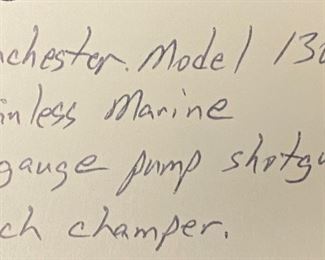 nchester. Model 130
inless Marine
gauge pump shotgu
ch champer.